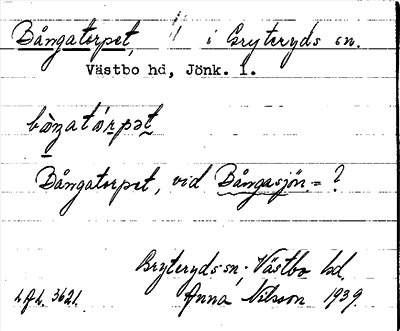 Bångatorpet, i Gryteryds sn.
Västbo hd, Jönk. l.
båŋatórpət
Bångatorpet, vid Bångasjön = ?
Gryteryds sn. Västbo hd.
L.f.L. 3621. Anna Nilsson 1939.